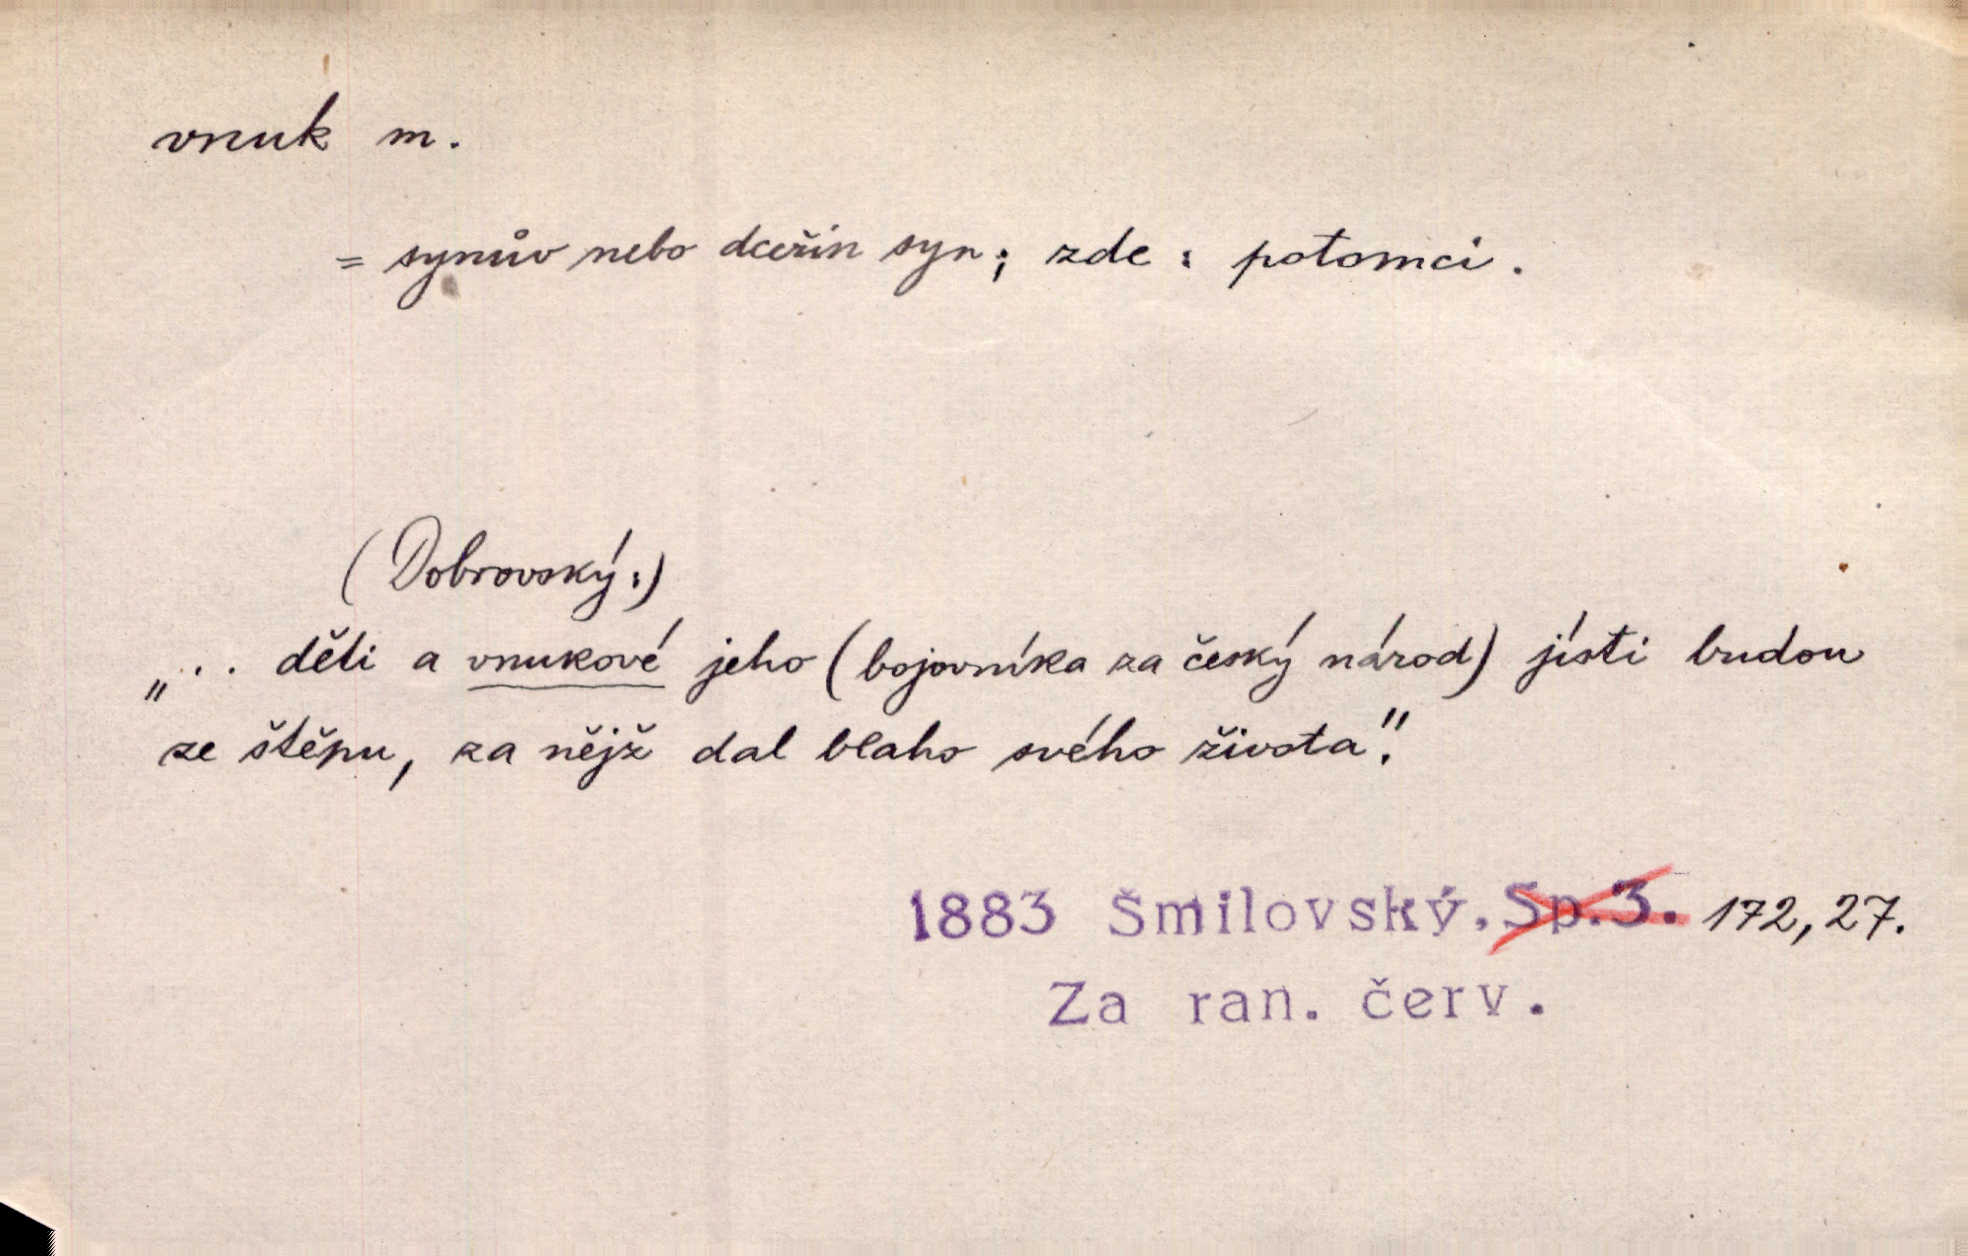 vnuk m.
= synův nebo dceřin syn; zde: potomci.
(Dobrovský:)
„... děti a vnukové jeho (bojovníka za český národ) jísti budou
ze štěpu, za nějž dal blaho svého života".
1883 Šmilovský, Sp.3. 172, 27.
Za ran. červ.